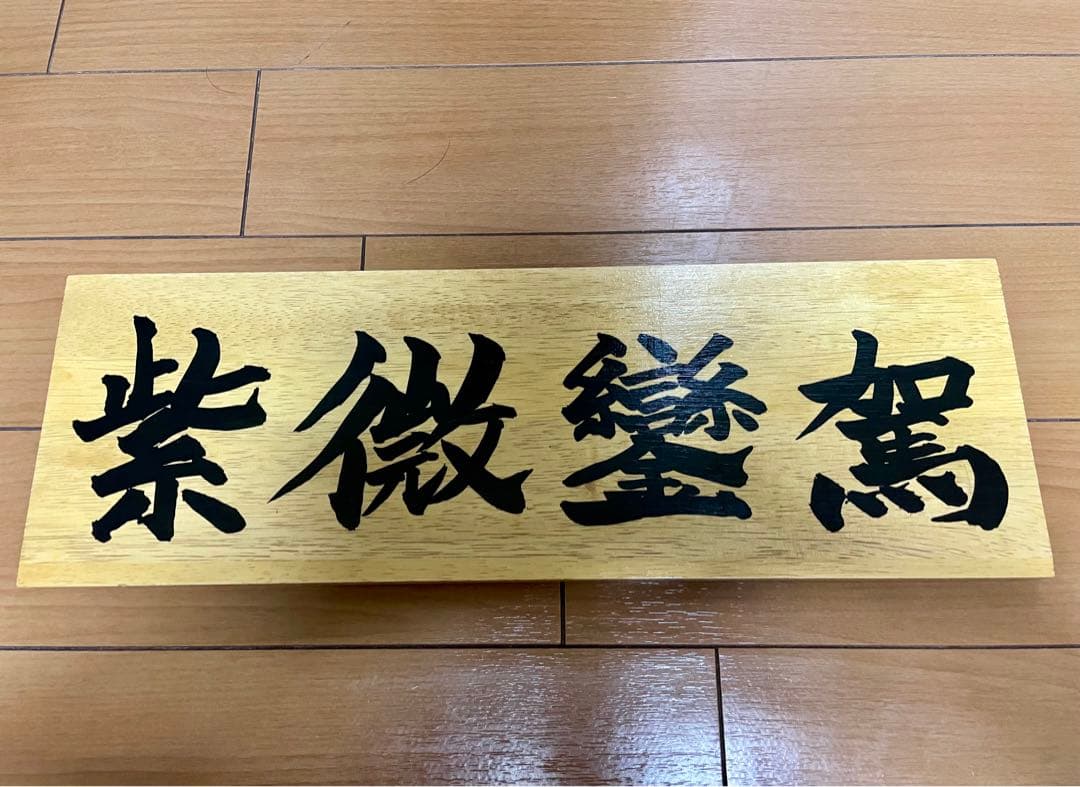 紫微鑾駕